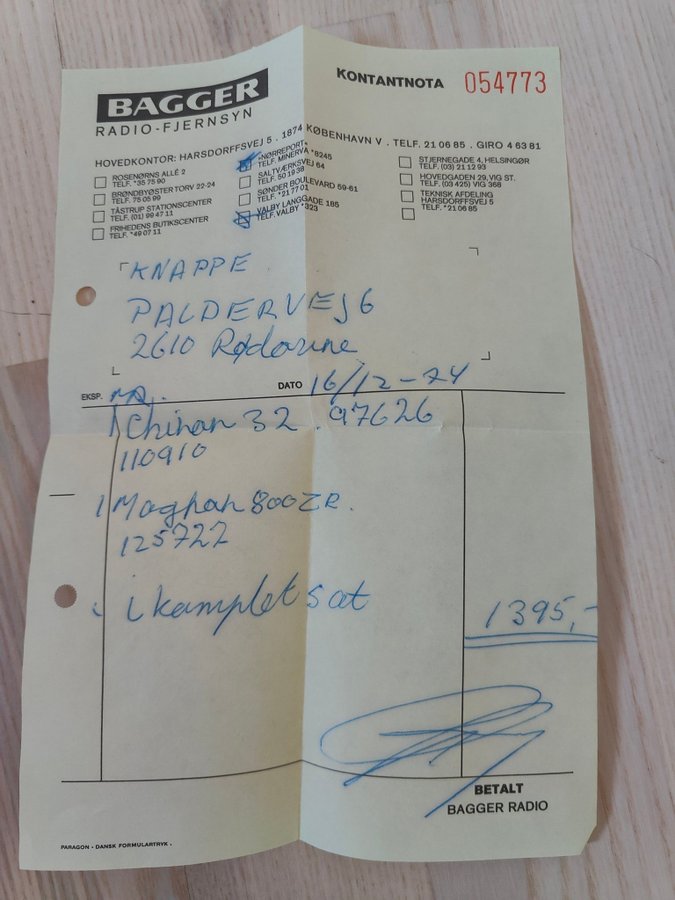 BAGGER
RADIO-FJERNSYN
KONTANTNOTA 054773
HOVEDKONTOR: HARSDORFFSVEJ 5 . 1874 KØBENHAVN V . TELF. 21 06 85 . GIRO 4 63 81
ROSENØRNS ALLÉ 2
TELF. *35 75 90
BRØNDBYØSTER TORV 22-24
TELF. 75 05 99
TÅSTRUP STATIONSCENTER
TELF. (01) 99 47 11
FRIHEDENS BUTIKSCENTER
TELF. *49 07 11
»NØRREPORT«
TELF. MINERVA *8245
SALTVÆRKSVEJ 64
TELF. 50 19 38
SØNDER BOULEVARD 59-61
TELF. *21 77 01
VALBY LANGGADE 185
TELF. VALBY *323
STJERNEGADE 4, HELSINGØR
TELF. (03) 21 12 93
HOVEDGADEN 29, VIG ST.
TELF. (03 425) VIG 368
TEKNISK AFDELING
HARSDORFFSVEJ 5
TELF. *21 06 85
KNAPPE
PALDERVEJ 6
2610 Rødovre
EKSP. DATO 16/12-74
1 97626
110910
1 800 ZR.
125722
i komplet sæt 1395,-
BETALT
BAGGER RADIO
PARAGON - DANSK FORMULARTRYK .